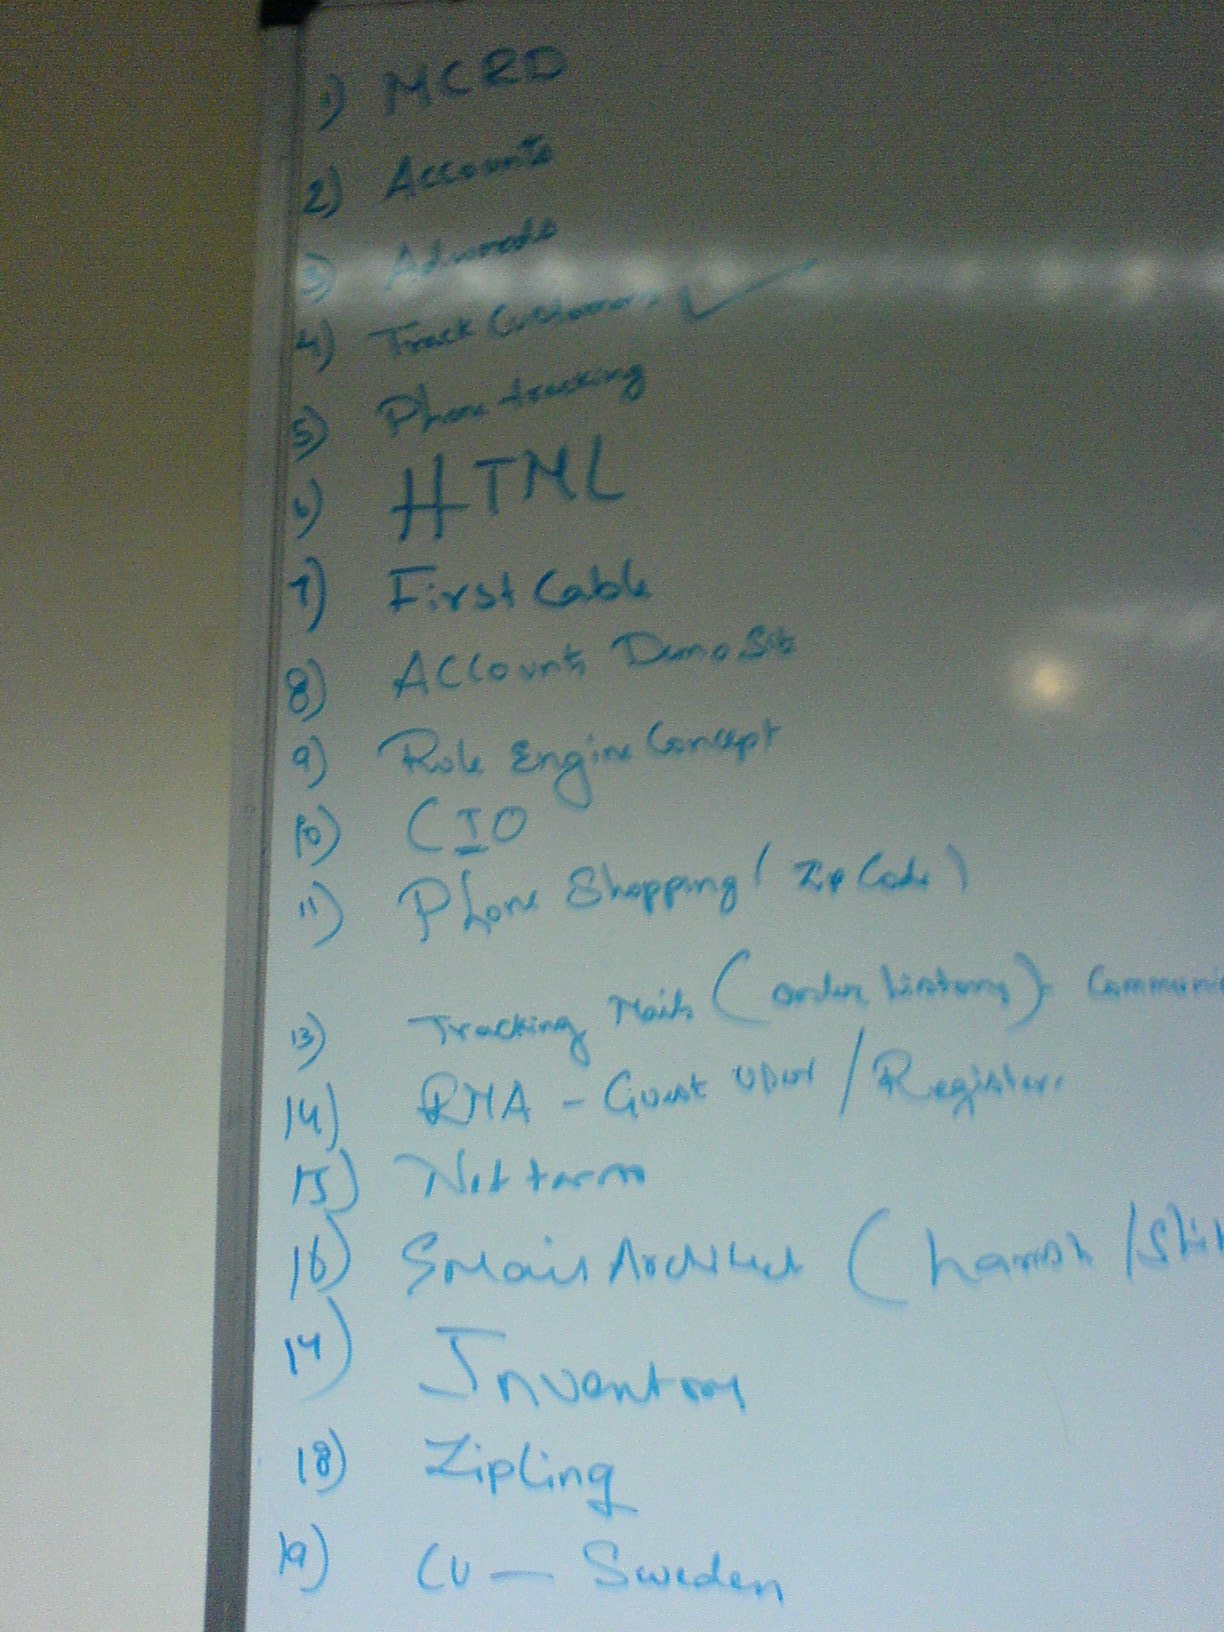 1) MCRD
2) Accounts
3) Adwords
4) Track Customers ✓
5) Phone tracking
6) HTML
7) First Cable
8) Accounts Demo Site
9) Rule Engine Concept
10) CIO
11) Phone Shopping (Zip Code)
13) Tracking Mails (order history) - Communi
14) RMA - Guest User / Register
15) Net terms
16) Email Architect (harish /Shi
17) Inventory
18) Zipling
19) CU — Sweden